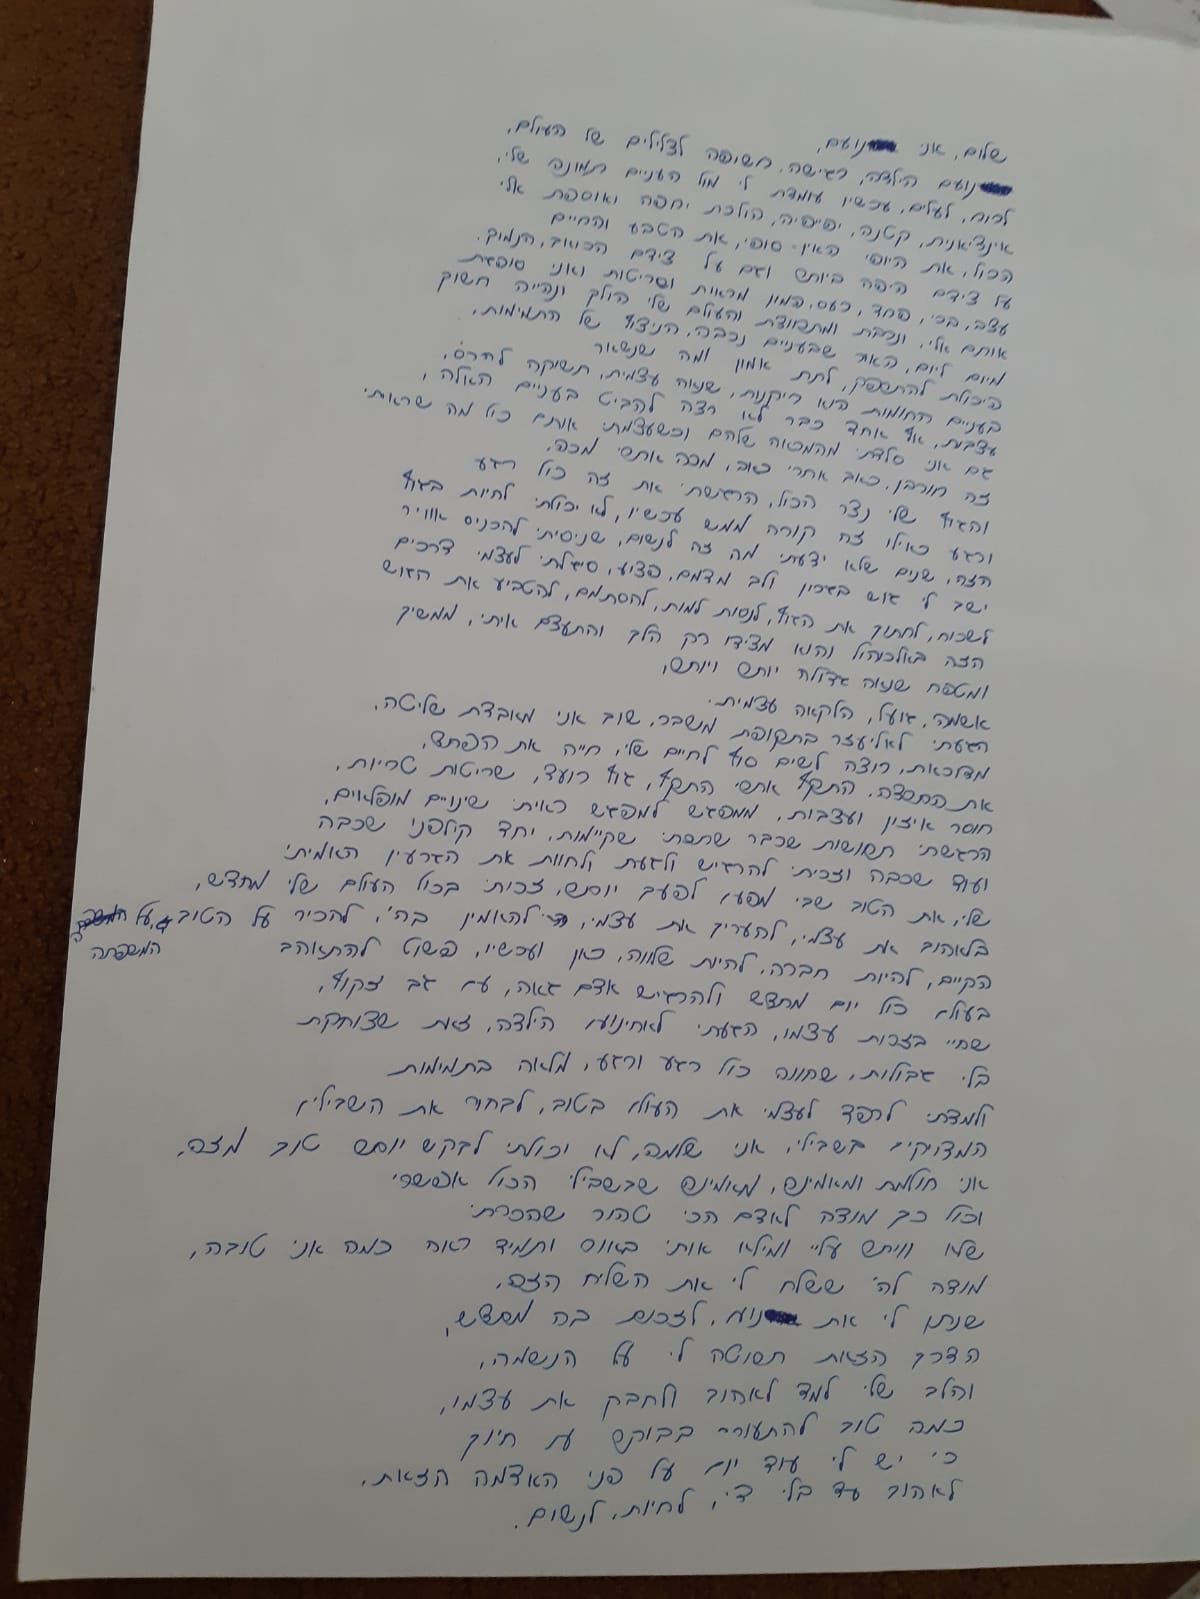 שלום, אני נועם,
נועם הילדה, רגישה. חשופה לצלילים של העולם,
לרוח, לעלים, עכשיו עומדת לי מול העניים תמונה שלי,
אינציאנית, קטנה, יפייפיה, הולכת יחפה ואוספת אלי
הכול, את היופי האין-סופי, את הטבע והחיים
על צידם היפה ביותר וגם על צידם הכואב, הנמוך.
עצב, בכי, פחד, כעס, המון מראות ושריטות ואני סופגת
אותם אלי, ונרבת ומתכווצת והעולם שלי הולך ונהייה חשוך
מיום ליום, האור שבעניים נכבה, הניצוץ של התמימות,
היכולת להתפסק, לתת אמון ומה שנשאר
בעניים החומות הוא ריקנות, שנאה עצמית, תשוקה להרס,
עצבות, אף אחד כבר לא רצה להביט בעניים האלה,
גם אני סלדתי מהמראה שלהם וכשעצמתי אותם כול מה שראיתי
זה חורבן. כאב אחרי כאב, מכה אחרי מכה.
והגוף שלי נצר הכול, הרגשתי את זה כול רגע
ורגע כאילו זה קורה ממש עכשיו, לא יכולתי לחיות בגוף
הזה, שנים שלא ידעתי מה זה לנשום, שניסיתי להכניס אוויר
ישב לי גוש בגרון ולב מדמם, פציע, סיגלתי לעצמי דרכים
לשכוח, לחתוך את הגוף, לנסות למות, להסתמם, להטביע את הגוש
הזה באלכוהול והוא מצידו רק הלך והתעצם איתי, ממשיך
ומטפח שנאה גדולה יותר ויותר,
אשמה, גועל, הלקאה עצמית.
הגעתי לאליעזר בתקופת משבר, שוב אני מאבדת שליטה,
מדוכאת, רוצה לשים סוף לחיים שלי, חייה את הפחד,
את החרדה, התקף אחרי התקף, גוף רועד, שריטות טריות,
חוסר איזון ועצבות, ממפגש למפגש ראיתי שינויים מופלאים,
הרגשתי תחושות שכבר שכחתי שקיימות, יחד קילפנו שכבה
ועוד שכבה וזכיתי להרגיש ולגעת ולחוות את הגרעין האמיתי
שלי, את הטוב שבי מפעם לפעם יותר, זכיתי בכול העולם שלי מחדש,
בלאהוב את עצמי, להעריך את עצמי, להאמין בה', להכיר על הטוב, על המשפחה
הקיים, להיות חברה, להיות שלווה, כאן ועכשיו, פשוט להתאהב
בעולם כול יום מחדש ולהרגיש אדם גאה, עם גב זקוף,
שחיי בזכות עצמו, הגעתי לאחינועם הילדה, זאת שצוחקת
בלי גבולות, שחווה כול רגע ורגע, מלאה בתמימות
ולמדתי לרפד לעצמי את העולם בטוב, לבחור את השבילים
המדויקים בשבילי, אני שלמה, לא יכולתי לבקש יותר טוב מזה.
אני חולמת ומאמינה, מאמינה שבשבילי הכול אפשרי
וכול כך מודה לאדם הכי טהור שהכרתי
שלא וויתר עליי ומילא אותי באור ותמיד ראה כמה אני טובה,
מודה לה' ששלח לי את השליח הזה,
שנתן לי את נועם, לזכות בה מחדש,
הדרך הזאת חסוטה לי על הנשמה,
והלב שלי למד לאהוב ולחבק את עצמו,
כמה טוב להתעורר בבוקר עם חיוך
כי יש לי עוד יום על פני האדמה הזאת,
לאהוב עד בלי די, לחיות, לנשום.